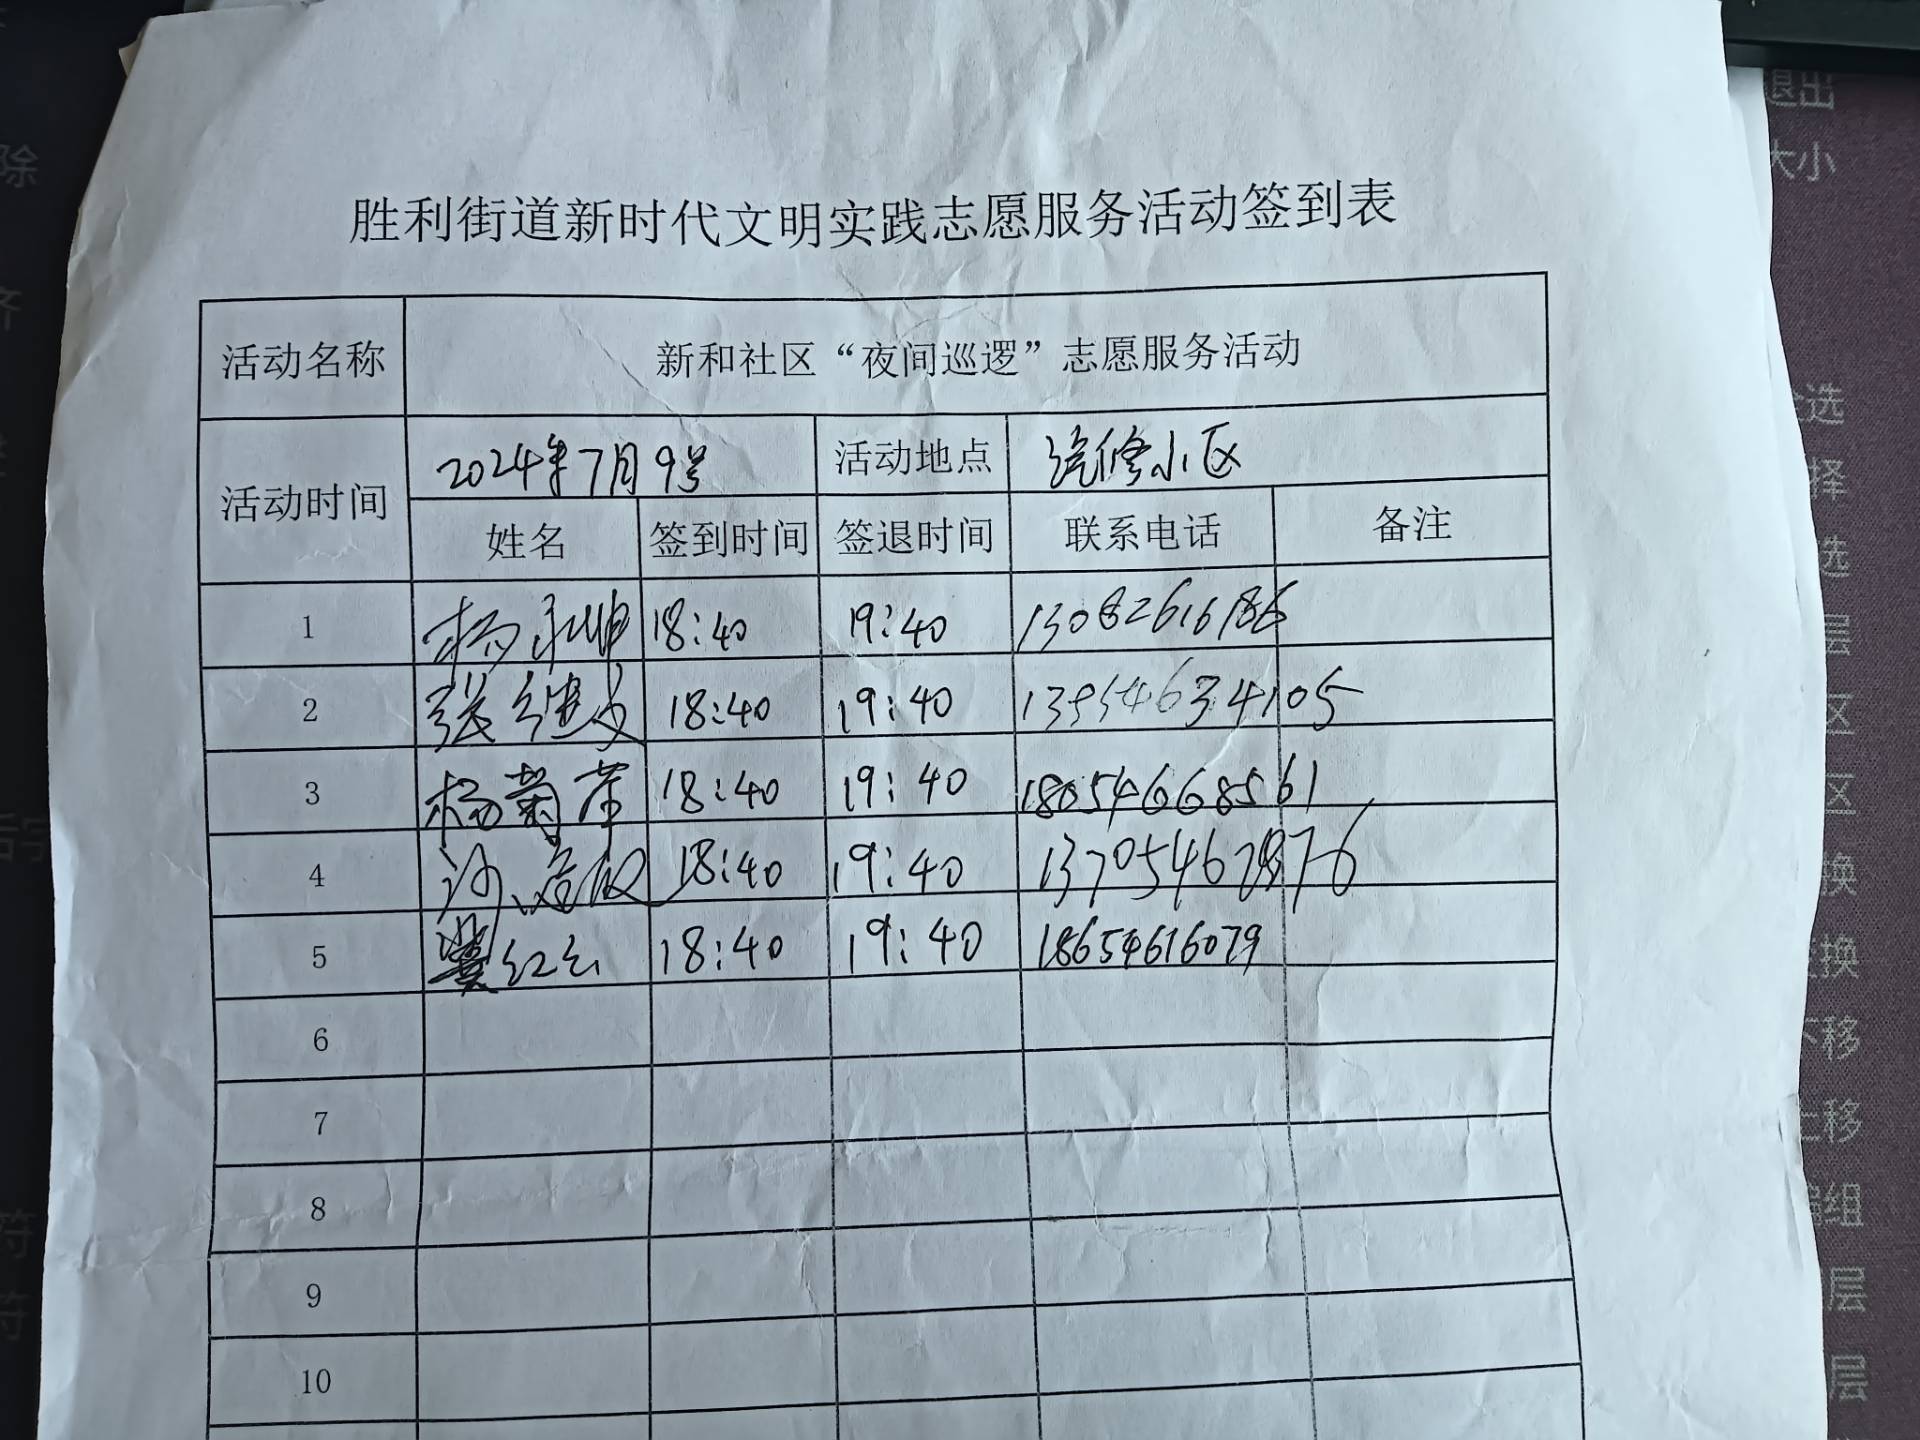 胜利街道新时代文明实践志愿服务活动签到表
活动名称 新和社区“夜间巡逻”志愿服务活动
活动时间 2024年7月9号 活动地点 汽修小区
姓名 签到时间 签退时间 联系电话 备注
1 杨永坤 18:40 19:40 13082616186
2 张继文 18:40 19:40 13954634105
3 杨菊苹 18:40 19:40 18054668561
4 18:40 19:40
5 冀红云 18:40 19:40 18654616079
6
7
8
9
10
除
齐
符
符
退出
大小
全选
择
选
层
区
区
换
换
下移
上移
编组
层
层